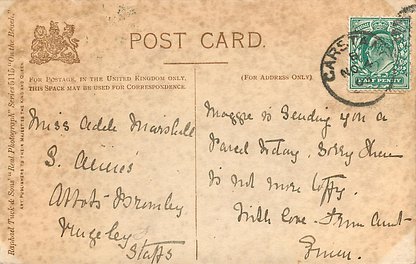 POST CARD.
FOR POSTAGE, IN THE UNITED KINGDOM ONLY,
THIS SPACE MAY BE USED FOR CORRESPONDENCE.
(FOR ADDRESS ONLY.)
Raphael Tuck & Sons' "Real Photograph" Series 5115 "On the Beach."
ART PUBLISHERS TO THEIR MAJESTIES THE KING AND QUEEN.
Miss Adele Marshall
S. Annes
Abbots Bromley
Rugeley
Staffs
Maggie is sending you a
Parcel today. Sorry there
is not more toffy.
With love from Aunt
CARST
HALF PENNY